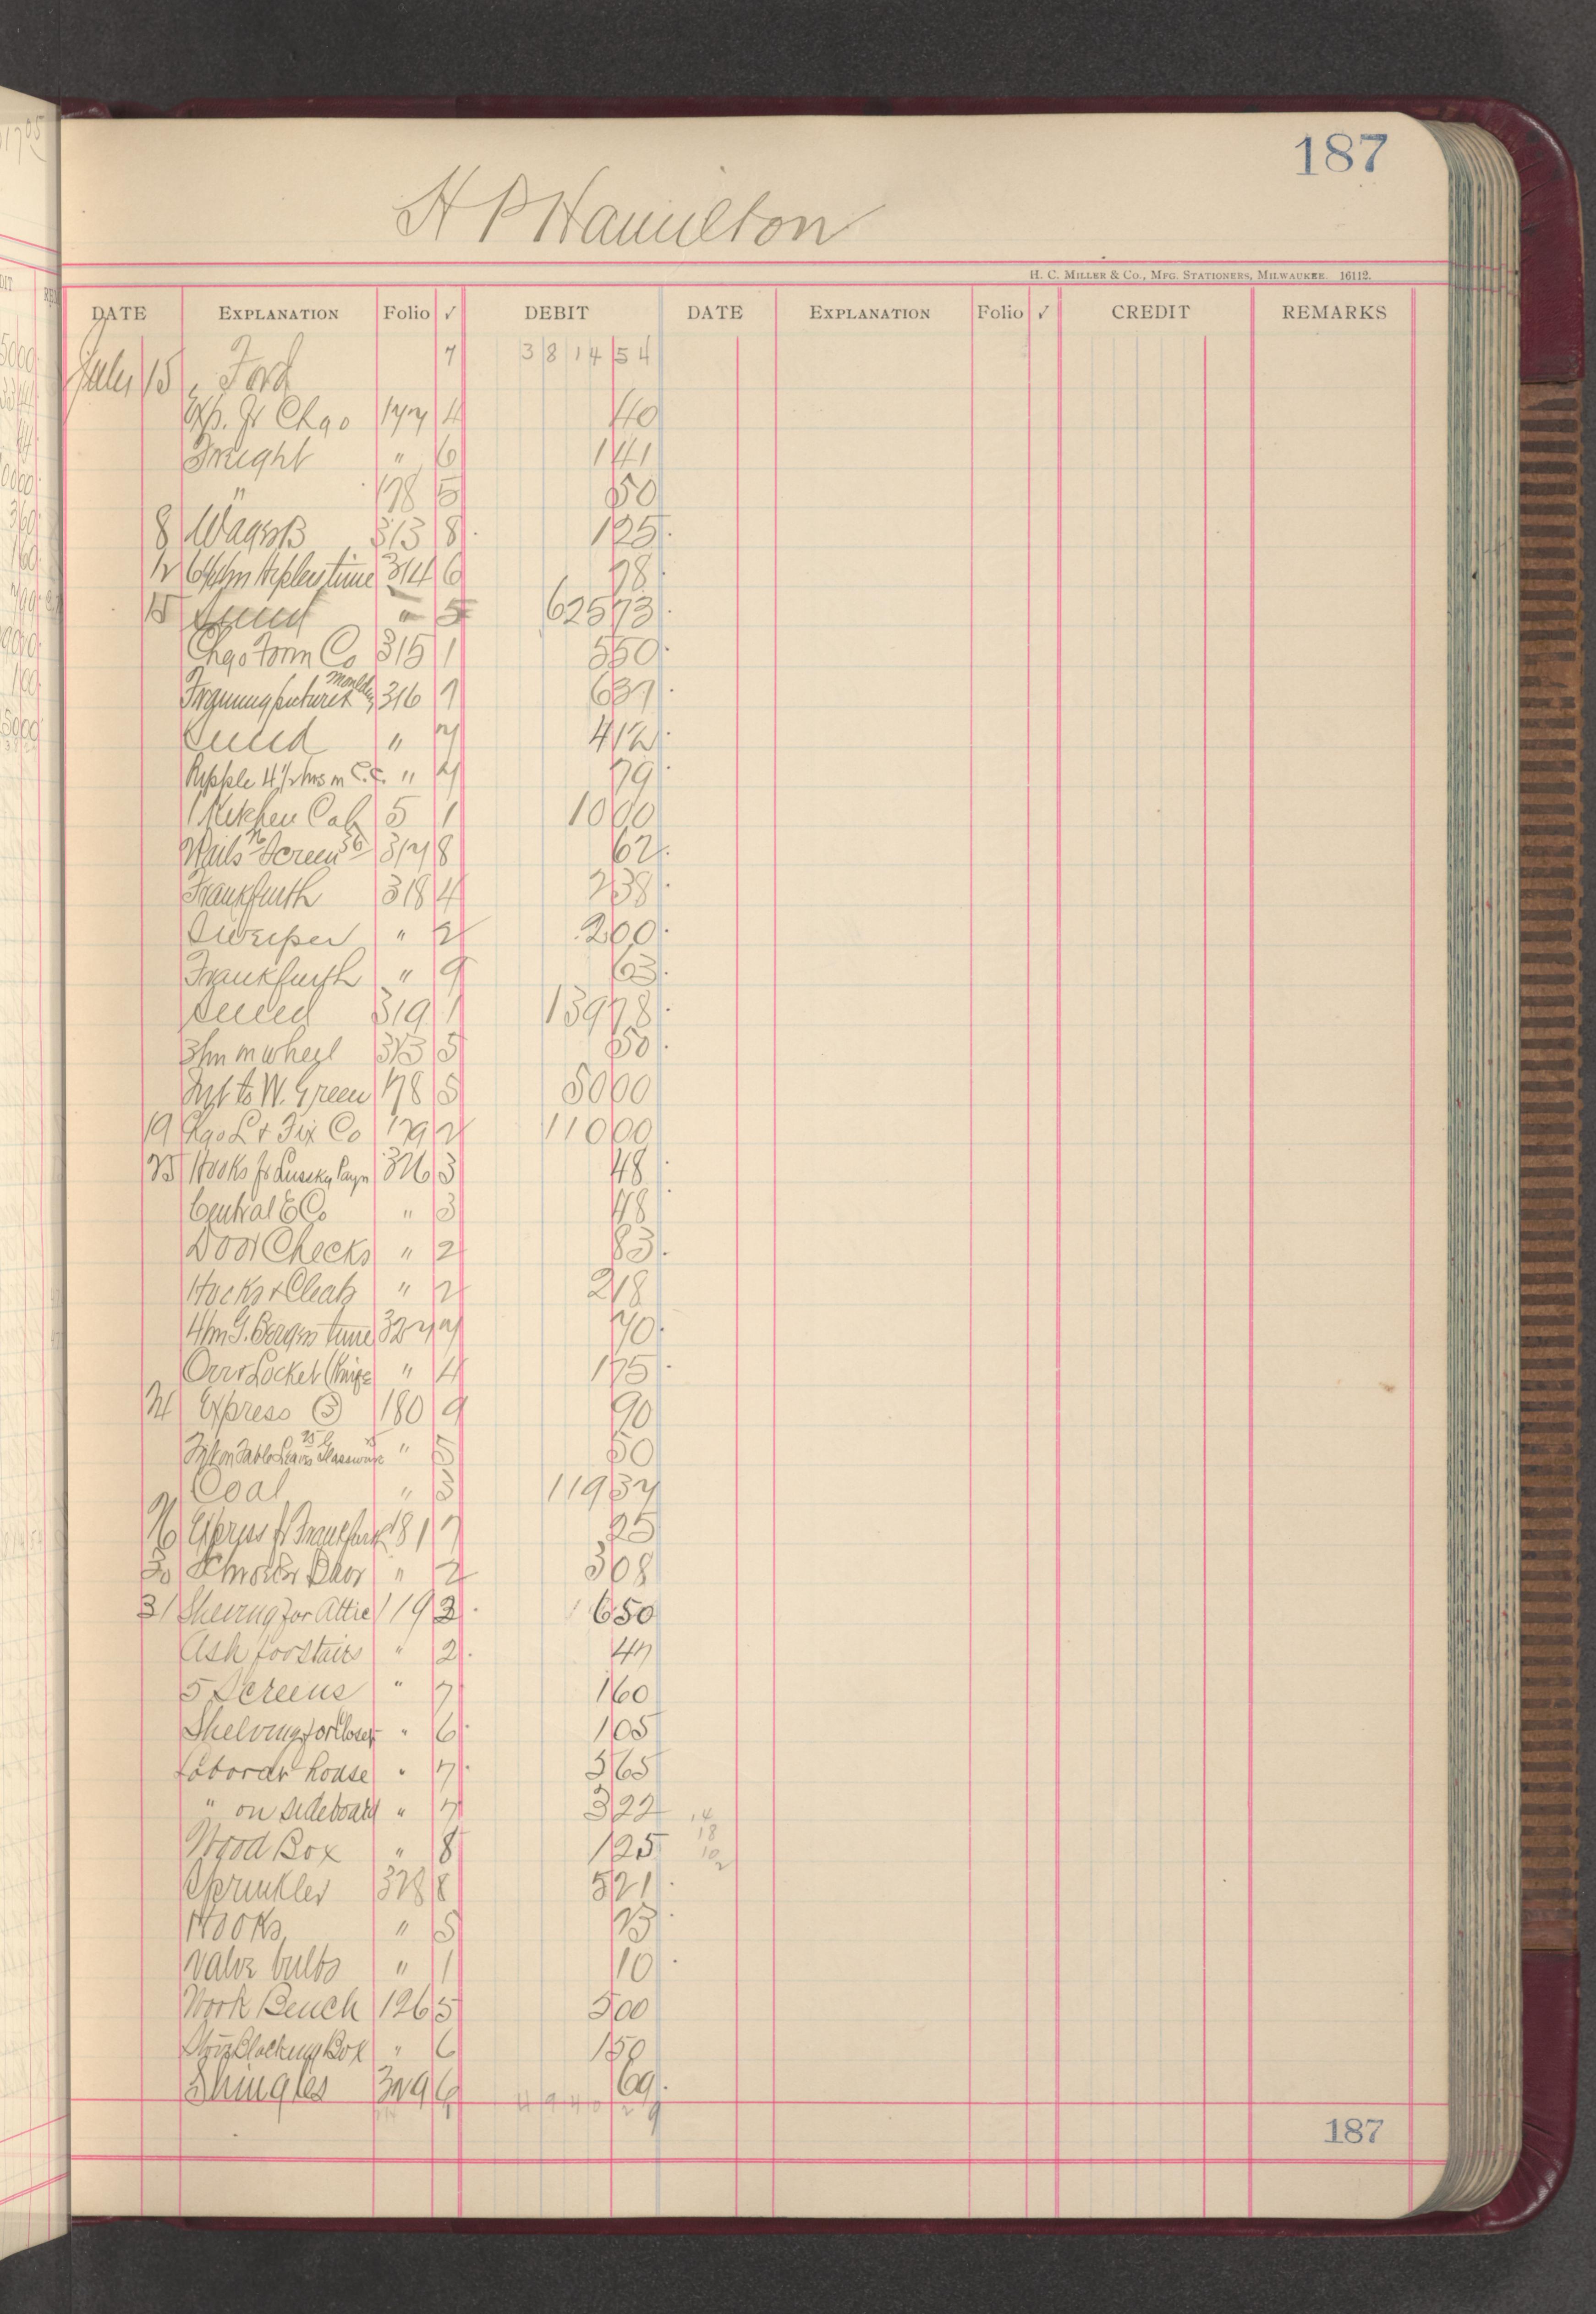 187
H P Hamilton
H. C. MILLER & CO., MFG. STATIONERS, MILWAUKEE. 16112.
DATE EXPLANATION Folio ✓ DEBIT DATE EXPLANATION Folio ✓ CREDIT REMARKS
July 15 Ford 7 3814 54
Exp. fr Chgo 177 4 40
Freight " 6 1 41
" 178 5 50
8 313 8 1 25
12 time 314 6 78
15 Sund " 5 625 73
Chgo Form Co 315 1 5 50
Framing pictures moulding 316 7 6 37
Sund " 7 4 12
Ripple 4 1/2 hrs m C.C. " 7 79
1 Kitchen Cab 5 1 10 00
Nails Screen 317 8 62
Frankfurth 318 4 2 38
Sweeper " 2 2 00
Frankfurth " 9 63
Sund 319 1 139 78
3 hrs m wheel 313 5 50
Frt to W. Green 178 5 50 00
19 Chgo L & Fix Co 179 2 110 00
23 Hooks fr 326 3 48
Central E Co " 3 48
Door Checks " 2 83
Hooks & Cleats " 2 2 18
time 327 7 70
Locket (Knife " 4 1 75
24 Express (3) 180 9 90
Glassware " 5 50
Coal " 3 119 37
26 Express fr Frankfurth 181 7 25
30 " 2 3 08
31 Shelving for Attic 119 3 6 50
Ash for stairs " 2 47
5 Screens " 7 1 60
Shelving for Closet " 6 1 05
Labor at house " 7 3 65
" on sideboard " 7 3 22
14
18
10
2
Wood Box " 8 1 25
Sprinkler 328 8 5 21
Hooks " 5 23
Valve bulbs " 1 10
Work Bench 126 5 5 00
Blacking Box " 6 1 50
Shingles 329 6 69
4940 29
187